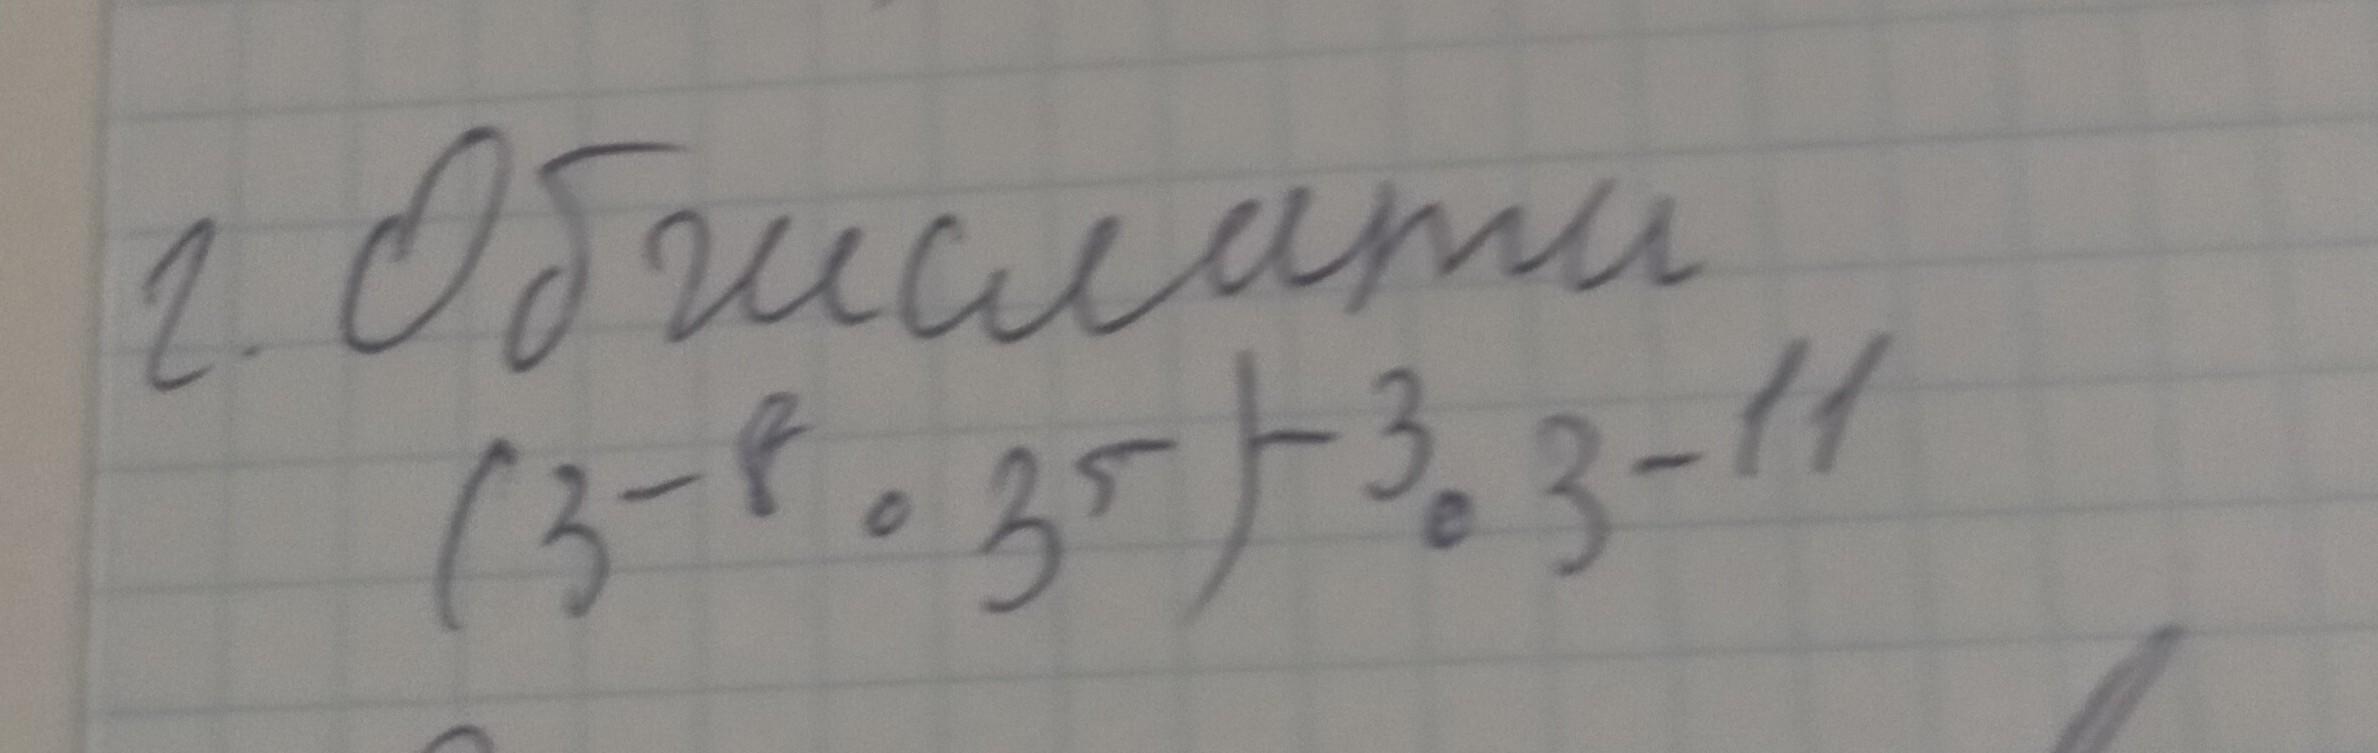 2. Обчислити
(3⁻⁸ · 3⁵)⁻³ · 3⁻¹¹